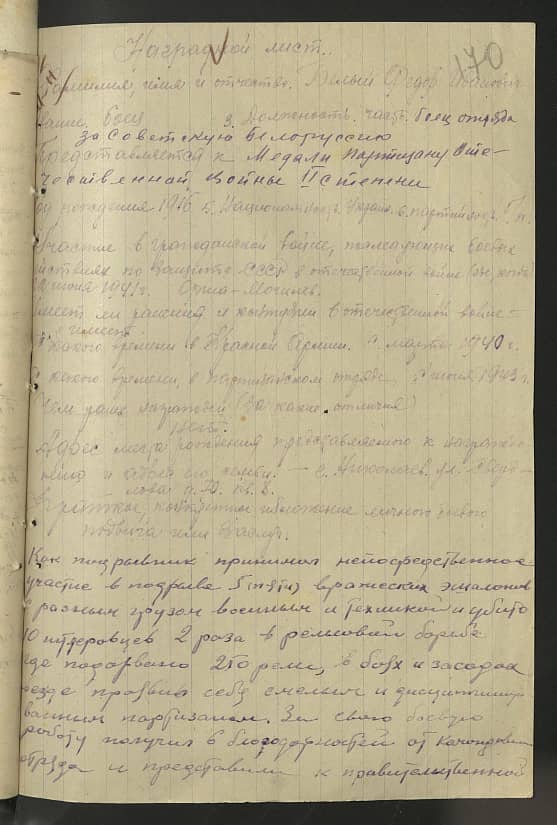 170
Наградной лист.
Фамилия, имя и отчество. Белый Федор
Звание. боец 3. Должность, часть. боец отряда
за Советскую Белоруссию
Представляется к Медали Партизану Оте-
чественной Войны II степени
год рождения 1916 5. Национальность Украин. 6. партийность
Участие в гражданской войне, последующих боевых
действиях по защите СССР в отечественной войне
июня 1941 г. Орша-Могилев.
имеет ли ранения и контузии в отечественной войне -
имеет
С какого времени в Красной Армии. с марта 1940 г.
С какого времени, в партизанском отряде, с июня 1943 г.
Чем ранее награжден (за какие отличия)
нет.
Адрес места рождения представляемого к награжде-
нию и адрес его семьи. - г. Николаев. ул. Сверд-
лова
Краткое, конкретное изложение личного боевого
подвига или заслуг.
Как подрывник принимал непосредственное
участие в подрыве 5 (пяти) вражеских эшалонов
с разным грузом военным и Техникой и убито
10 гитлеровцев 2 раза в рельсовой борьбе
где подорвано 250 рельс, в боях и засадах
везде проявил себя смелым и дисциплинир
ванным партизаном. За свою боевую
работу получил 6 благодарностей от
отряда и представлен к правительственной